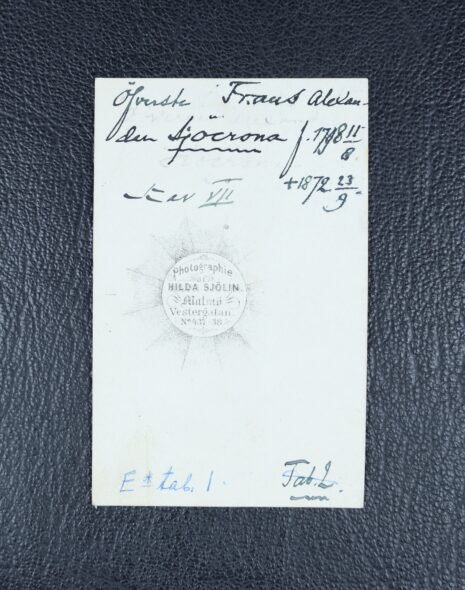 Öfverste Frans Alexan-
der Sjöcrona f. 1798 11/8
+1872 23/9
Tav VII
Photographie
HILDA SJÖLIN.
Malmö
Vestergatan.
Tab. 1.